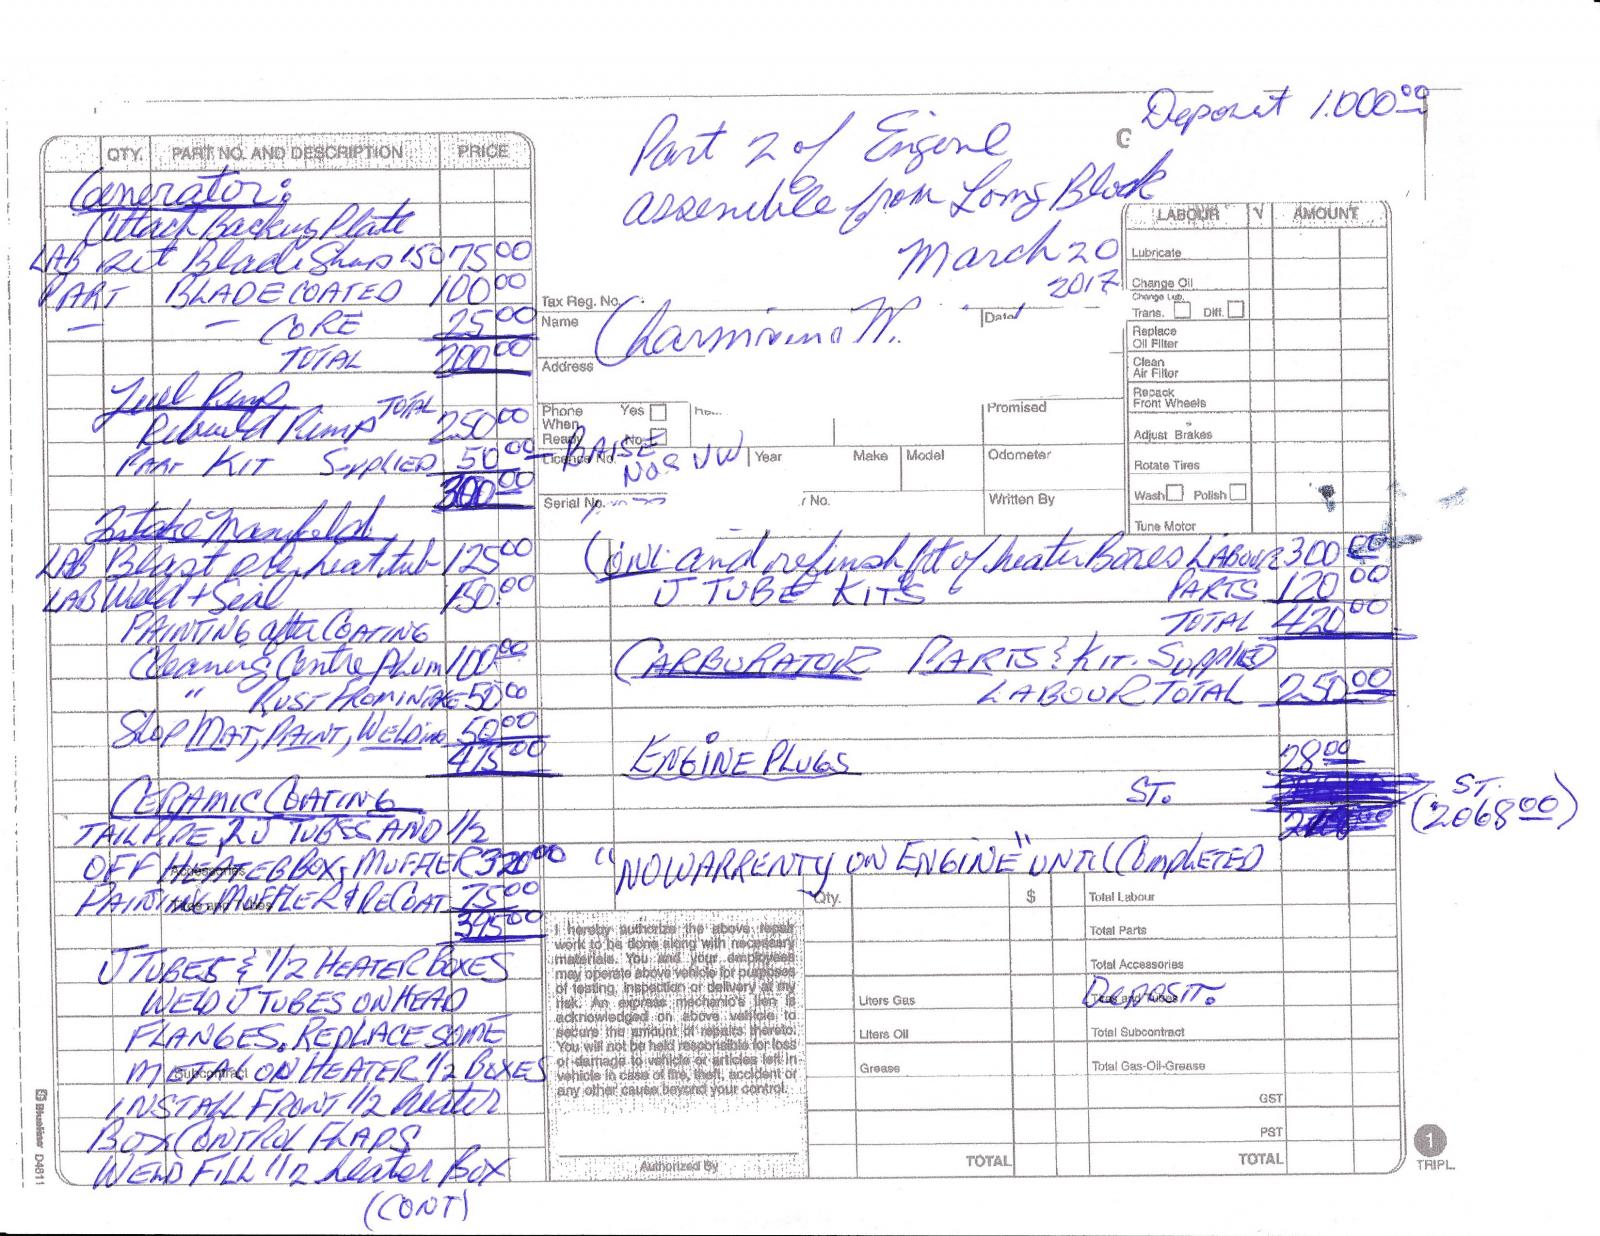 Deposit 1.000.00
Part 2 of Engine
assemble from Long Block
March 20
2017
QTY. PART NO. AND DESCRIPTION PRICE
Generator:
Attach Backing Plate
LAB Set Blade Shup 150 75.00
PART BLADE COATED 100.00
— — CORE 25.00
TOTAL 200.00
Fuel Pump
TOTAL
Rebuild Pump 250.00
PART KIT SUPPLIED 50.00 - BAISE
NOS VW
300.00
Intake Manifold
LAB Blast heat tub 125.00
LAB Weld + Seal 150.00
PAINTING after COATING
Cleaning Centre Alum 100.00
" RUST FROM INTAKE 50.00
Shop MAT, PAINT, WELDING 50.00
475.00
CERAMIC COATING
TAIL PIPE, 2 J TUBES AND 1/2
OFF HEATER BOX, MUFFLER 320.00
Accessories
PAINTING MUFFLER & RECOAT 75.00
Tires and Tubes
395.00
J TUBES & 1/2 HEATER BOXES
WELD J TUBES ON HEAD
FLANGES. REPLACE SOME
METAL ON HEATER 1/2 BOXES
Subcontract
INSTALL FRONT 1/2 heater
BOX CONTROL FLAPS
WELD FILL 1/2 heater Box
(CONT)
Tax Reg. No.
Name
Date
Address
Phone When Ready Yes No
Promised
Licence No. Year Make Model Odometer
Serial No. No. Written By
LABOUR √ AMOUNT
Lubricate
Change Oil
Change Lub.
Trans. Diff.
Replace
Oil Filter
Clean
Air Filter
Repack
Front Wheels
Adjust Brakes
Rotate Tires
Wash Polish
Tune Motor
and refinish of heater Boxes LABOUR 300.00
J TUBE KITS PARTS 120.00
TOTAL 420.00
CARBURATOR PARTS & KIT. SUPPLIED
LABOUR TOTAL 250.00
ENGINE PLUGS 28.00
ST. ST.
(2068.00)
"NO WARRENTY ON ENGINE" UNTIL COMPLETED
I hereby authorize the above repair
work to be done along with necessary
materials. You and your employees
may operate above vehicle for purposes
of testing, inspection or delivery at my
risk. An express mechanic's lien is
acknowledged on above vehicle to
secure the amount of repairs thereto.
You will not be held responsible for loss
or damage to vehicle or articles left in
vehicle in case of fire, theft, accident or
any other cause beyond your control.
Authorized By
Qty. $
Liters Gas
Liters Oil
Grease
TOTAL
Total Labour
Total Parts
Total Accessories
Tires and Tubes
DEPOSIT.
Total Subcontract
Total Gas-Oil-Grease
GST
PST
TOTAL
1
TRIPL.
Blueline D4611